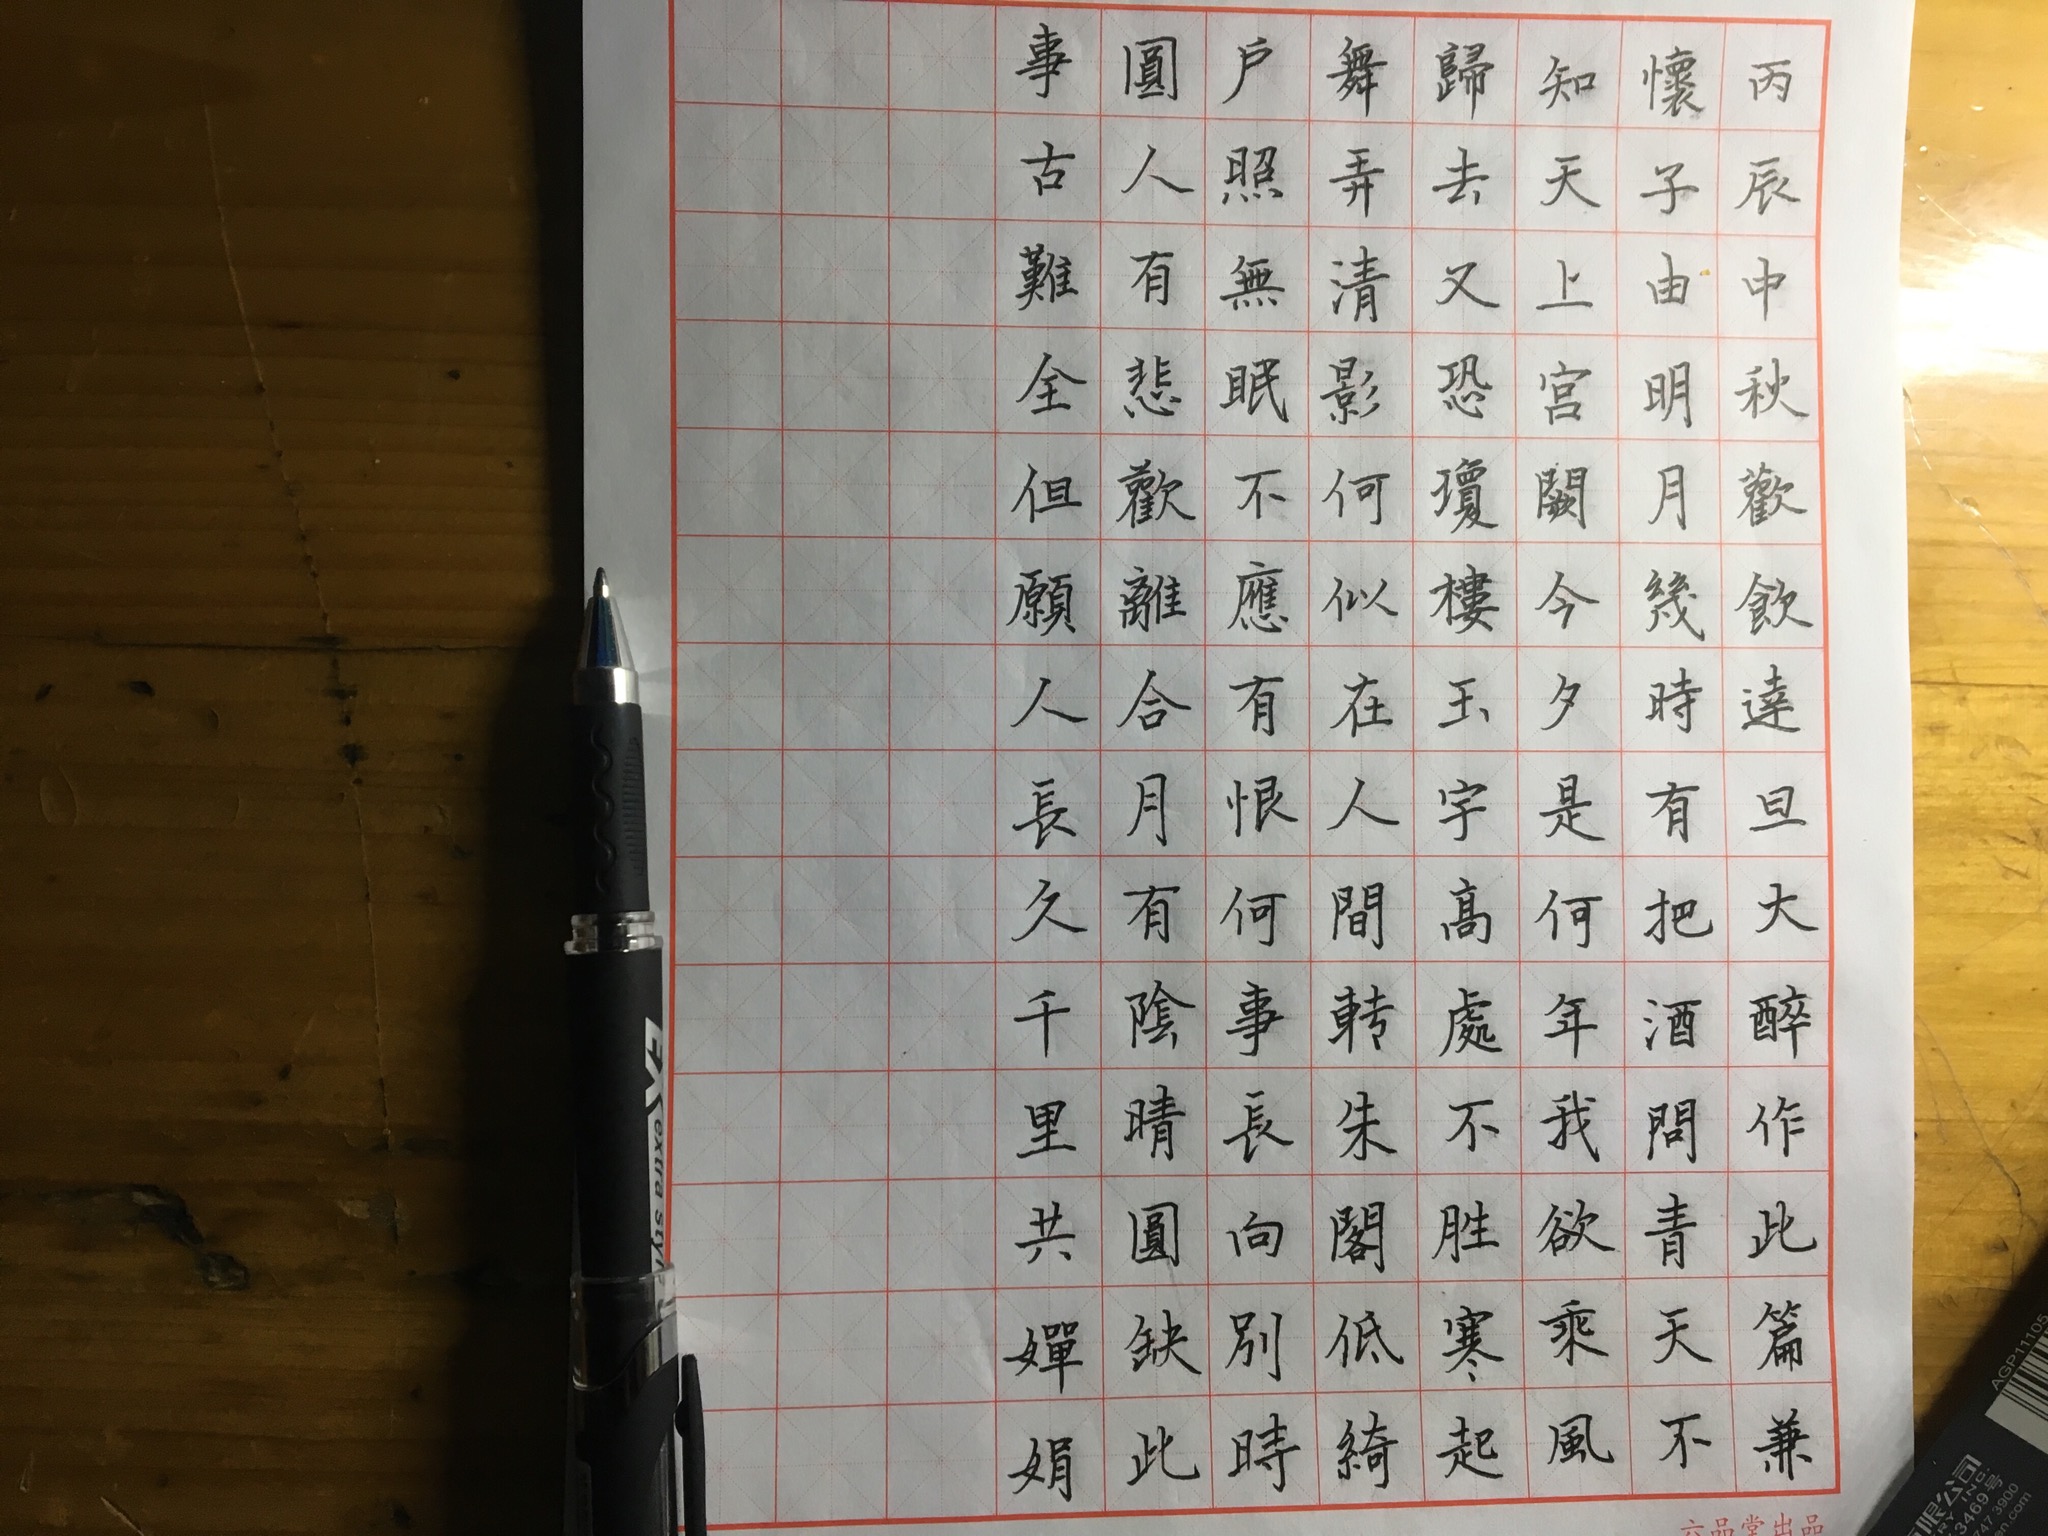 丙辰中秋歡飲達旦大醉作此篇兼
懷子由明月幾時有把酒問青天不
知天上宮闕今夕是何年我欲乘風
歸去又恐瓊樓玉宇高處不胜寒起
舞弄清影何似在人間轉朱閣低綺
户照無眠不應有恨何事長向別時
圓人有悲歡離合月有陰晴圓缺此
事古難全但願人長久千里共嬋娟
六品堂出品
extra
AGP11105
限公司